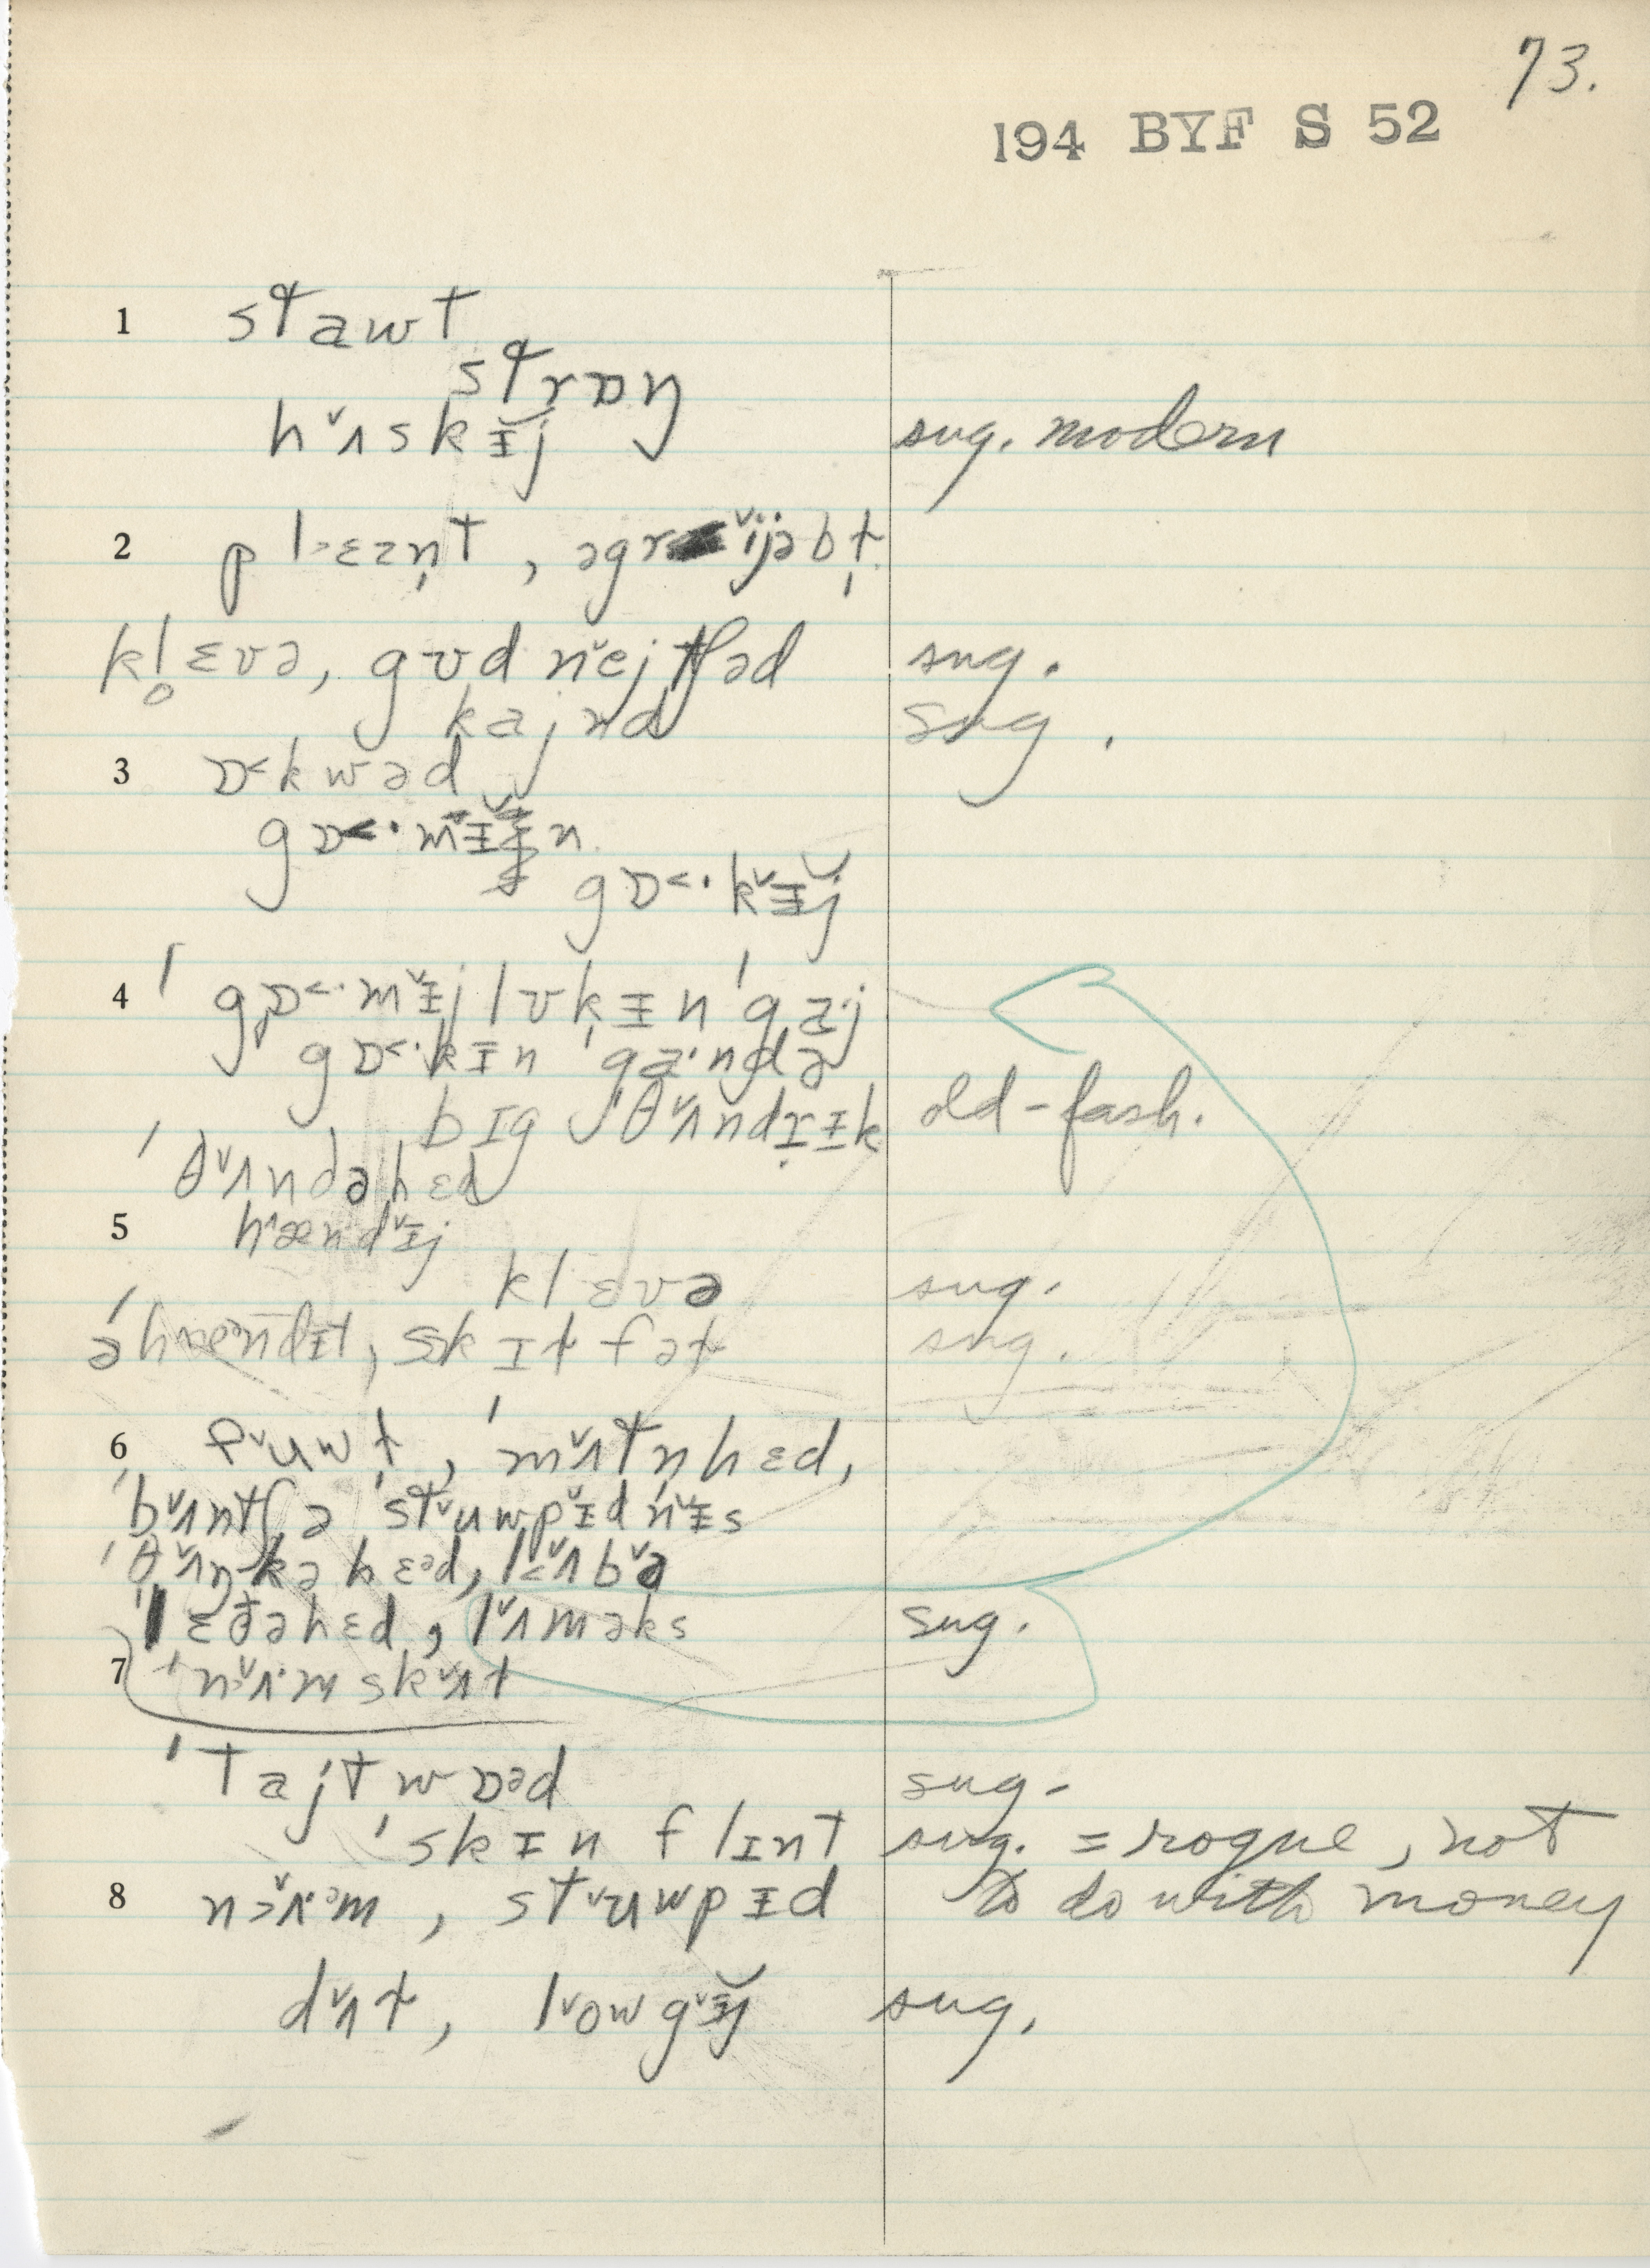 73.
194 BYF S 52
1 stawt
strɒŋ
hˇʌskɪ̵̌j sug. modern
2 pl˃ɛzn̩t, əgrˇijəbɫ̩
kl̥ɛvə, gʊd nˇejtʃəd sug.
kajnd sug.
3 ɒ˂kwəd
gɒ˂·mɪ̵̌n
gɒ˂·kˇɪ̵̌j
4 ˈgɒ˂·mˇɪ̵j lʊkɪ̵n ˈgaj
gɒ˂·kɪ̵n ˈga·ndə
bɪg ˈθˇʌndrɪ̵k old-fash.
ˈθˇʌndəhɛd
5 hændˇɪ̵j
klɛvə sug.
ə́hændɪ̵t, skɪɫfəɫ sug.
6 fˇuwɫ, ˈmˇʌtn̩hɛd,
ˈbˇʌntʃə ˈstˇuwpˇɪ̵dnˇɪ̵s
ˈθˇʌŋkəhɛᵊd, l˂ˇʌbˇə
ˈlɛðəhɛd, lˇʌməks sug.
7 ˈn˃ˇʌ·mskˇʌɫ
ˈtajtwɒᵊd sug.
ˈskɪ̵nflɪnt sug. = rogue, not
8 n˃ˇʌ·ᵊm, stˇuwpɪ̵d to do with money
dˇʌɫ, lˇowgˇɪ̵̌j sug.